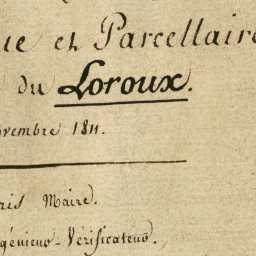 ue et Parcellaire
du Loroux.
ovembre 1811.
ris Maire.
génieur-Vérificateur.